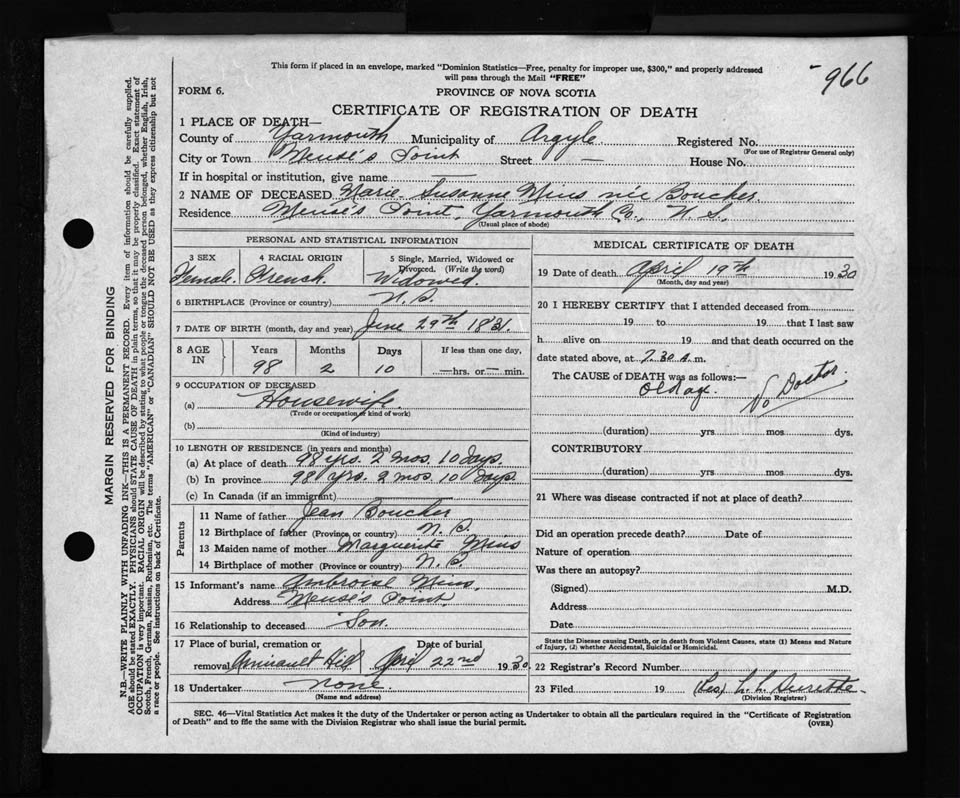 966
This form if placed in an envelope, marked "Dominion Statistics—Free, penalty for improper use, $300," and properly addressed
will pass through the Mail "FREE"
FORM 6. PROVINCE OF NOVA SCOTIA
CERTIFICATE OF REGISTRATION OF DEATH
1 PLACE OF DEATH—
County of Yarmouth Municipality of Argyle Registered No.
(For use of Registrar General only)
City or Town Meuse's Point Street — House No.
If in hospital or institution, give name —
2 NAME OF DECEASED Marie Susanne Mius née Boucher.
Residence Meuse's Point, Yarmouth Co., N.S.
(Usual place of abode)
PERSONAL AND STATISTICAL INFORMATION
3 SEX 4 RACIAL ORIGIN 5 Single, Married, Widowed or Divorced. (Write the word)
Female. French. Widowed.
6 BIRTHPLACE (Province or country) N.S.
7 DATE OF BIRTH (month, day and year) June 29th 1831.
8 AGE IN Years Months Days If less than one day,
98 2 10 —hrs. or — min.
9 OCCUPATION OF DECEASED
(a) Housewife.
(Trade or occupation or kind of work)
(b)
(Kind of industry)
10 LENGTH OF RESIDENCE (in years and months)
(a) At place of death 98 yrs. 2 mos. 10 days.
(b) In province 98 yrs. 2 mos. 10 days.
(c) In Canada (if an immigrant)
Parents
11 Name of father Jean Boucher
12 Birthplace of father (Province or country) N.S.
13 Maiden name of mother Marguerite Mius
14 Birthplace of mother (Province or country) N.S.
15 Informant's name Ambroise Mius.
Address Meuse's Point.
16 Relationship to deceased Son.
17 Place of burial, cremation or removal Date of burial
Amirault Hill April 22nd 1930
18 Undertaker none.
(Name and address)
MEDICAL CERTIFICATE OF DEATH
19 Date of death April 19th 1930
(Month, day and year)
20 I HEREBY CERTIFY that I attended deceased from
19 to 19 that I last saw
h alive on 19 and that death occurred on the
date stated above, at 7.30 a.m.
The CAUSE of DEATH was as follows:—
Old age. No Doctor
(duration) yrs mos dys.
CONTRIBUTORY
(duration) yrs mos dys.
21 Where was disease contracted if not at place of death?
Did an operation precede death? Date of
Nature of operation
Was there an autopsy?
(Signed) M.D.
Address
Date
State the Disease causing Death, or in death from Violent Causes, state (1) Means and Nature
of Injury, (2) whether Accidental, Suicidal or Homicidal.
22 Registrar's Record Number
23 Filed 19
(Division Registrar)
SEC. 46—Vital Statistics Act makes it the duty of the Undertaker or person acting as Undertaker to obtain all the particulars required in the "Certificate of Registration
of Death" and to file the same with the Division Registrar who shall issue the burial permit. (OVER)
MARGIN RESERVED FOR BINDING
N.B.—WRITE PLAINLY WITH UNFADING INK—THIS IS A PERMANENT RECORD. Every item of information should be carefully supplied.
AGE should be stated EXACTLY. PHYSICIANS should STATE CAUSE OF DEATH in plain terms, so that it may be properly classified. Exact statement of
OCCUPATION is very important. RACIAL ORIGIN will be described by stating to what people or tongue the deceased person belonged, whether English, Irish,
Scotch, French, German, Russian, Ruthenian, etc. The terms "AMERICAN" or "CANADIAN" SHOULD NOT BE USED as they express citizenship but not
a race or people. See instructions on back of Certificate.